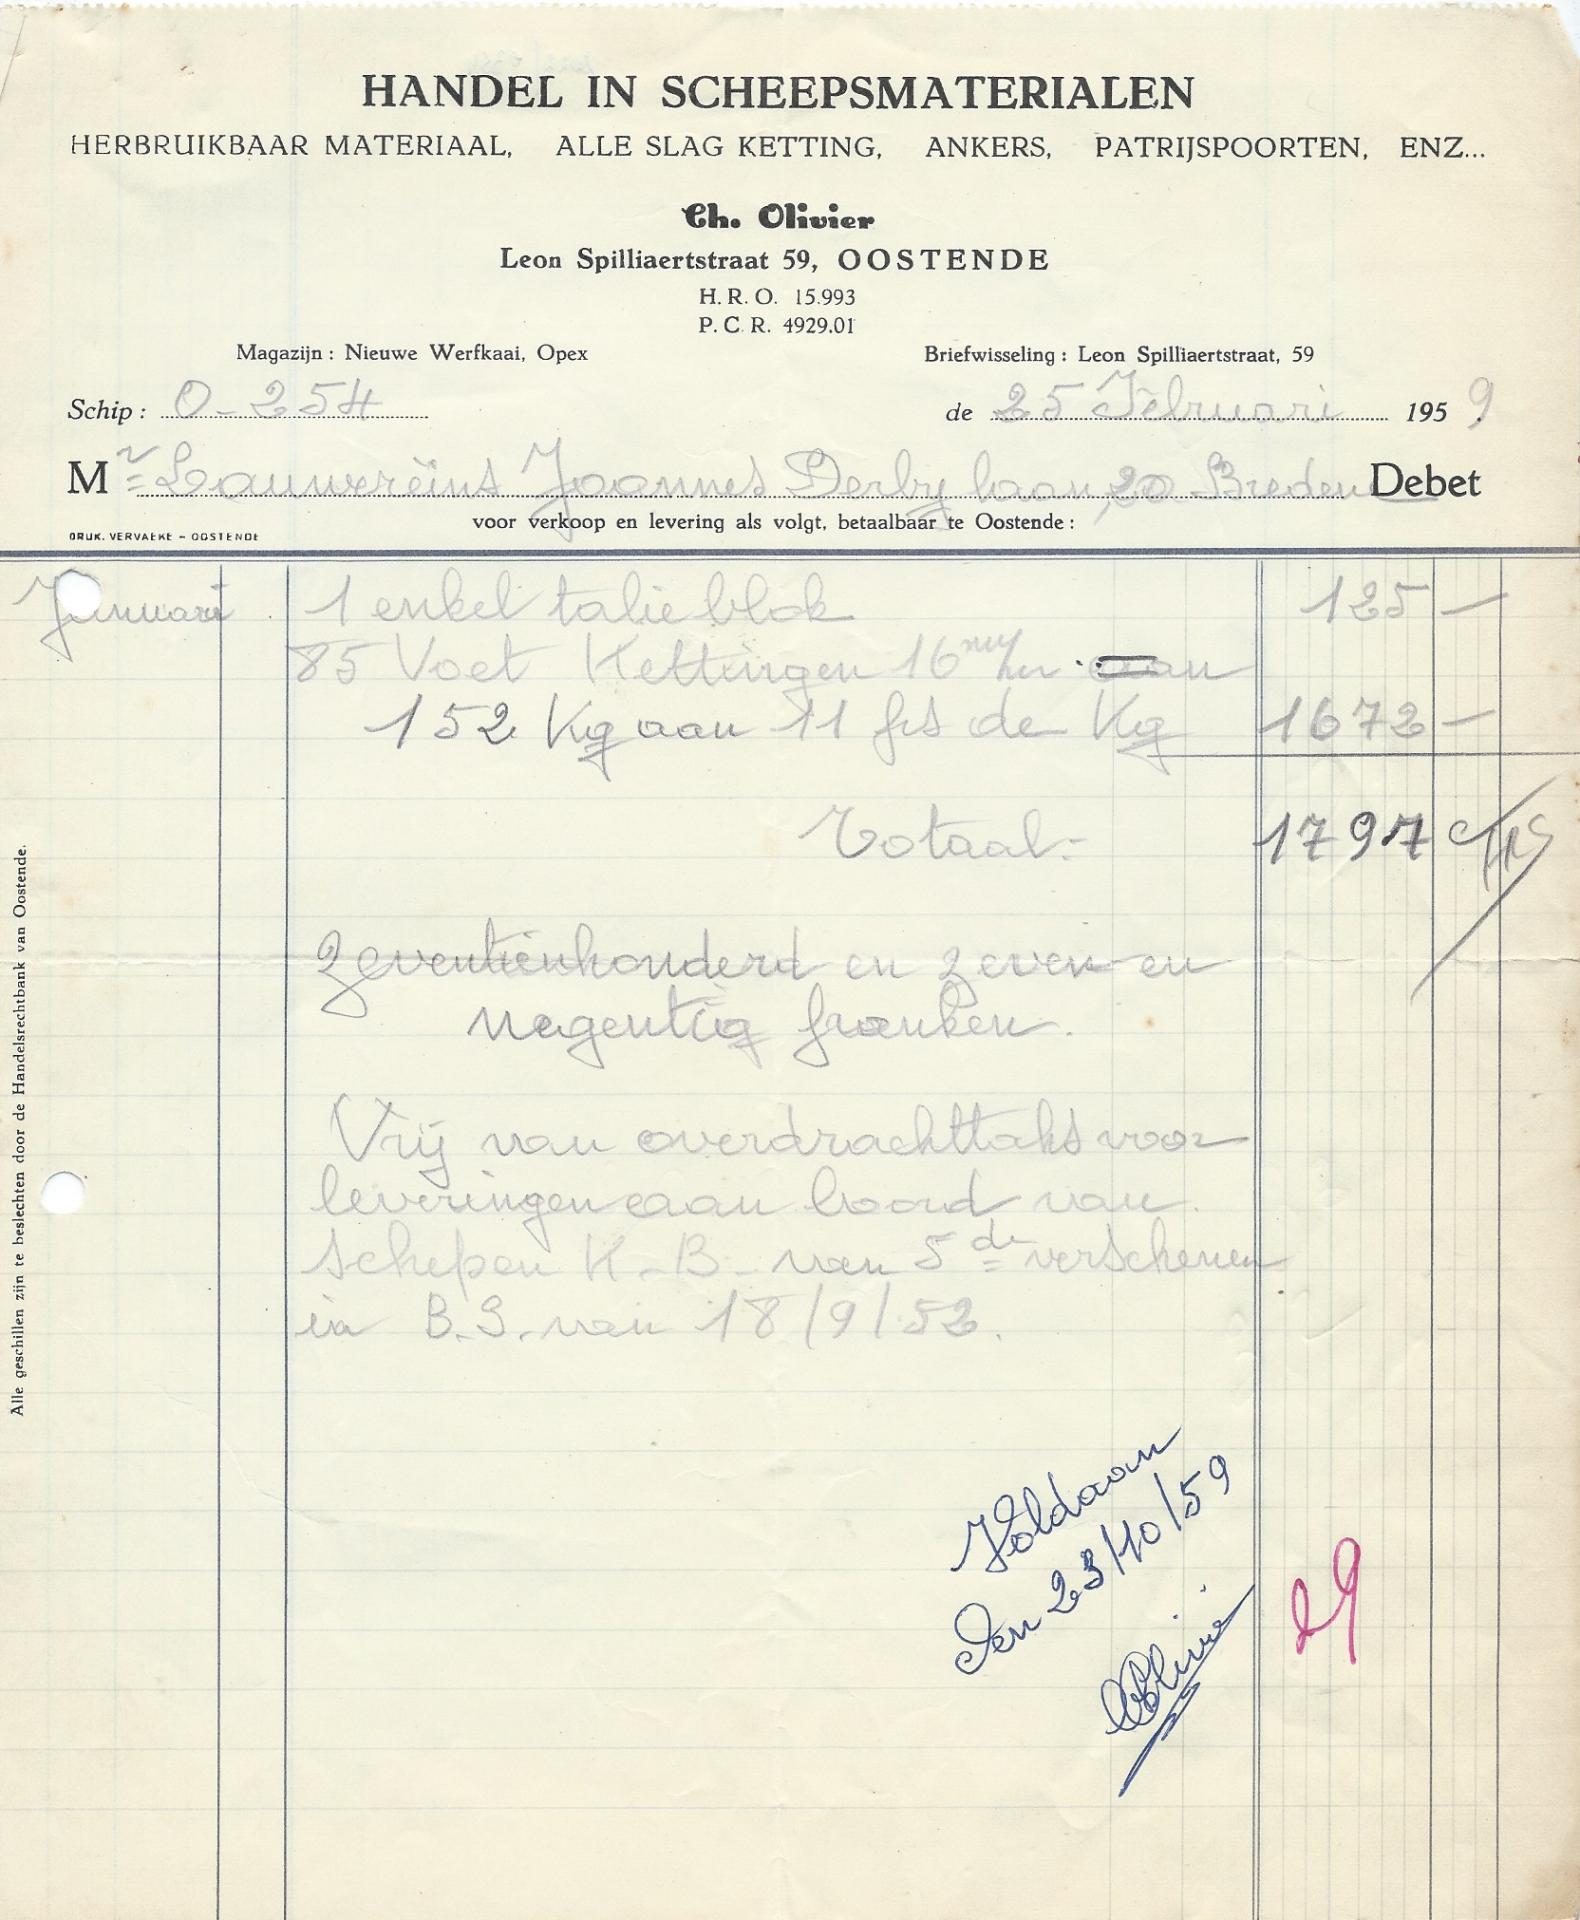 HANDEL IN SCHEEPSMATERIALEN
HERBRUIKBAAR MATERIAAL, ALLE SLAG KETTING, ANKERS, PATRIJSPOORTEN, ENZ...
Ch. Olivier
Leon Spilliaertstraat 59, OOSTENDE
H. R. O. 15.993
P. C. R. 4929.01
Magazijn : Nieuwe Werfkaai, Opex Briefwisseling : Leon Spilliaertstraat, 59
Schip : O-254 de 25 Februari 1959
Mr Lauwereins Joannes Derby laan, 20 Bredene Debet
voor verkoop en levering als volgt, betaalbaar te Oostende :
DRUK. VERVAEKE - OOSTENDE
Januari 1 enkel talie blok 125 —
85 Voet Kettingen 16 m/m
152 Kg aan 11 frs de Kg 1672 —
Totaal:- 1797
Zeventienhonderd en zeven en
negentig franken.
Vrij van overdrachttaks voor
leveringen aan boord van
schepen K-B- van 5de verschenen
in B.S. van 18/9/52.
Alle geschillen zijn te beslechten door de Handelsrechtbank van Oostende.
Voldaan
den 23/10/59
Olivier
29